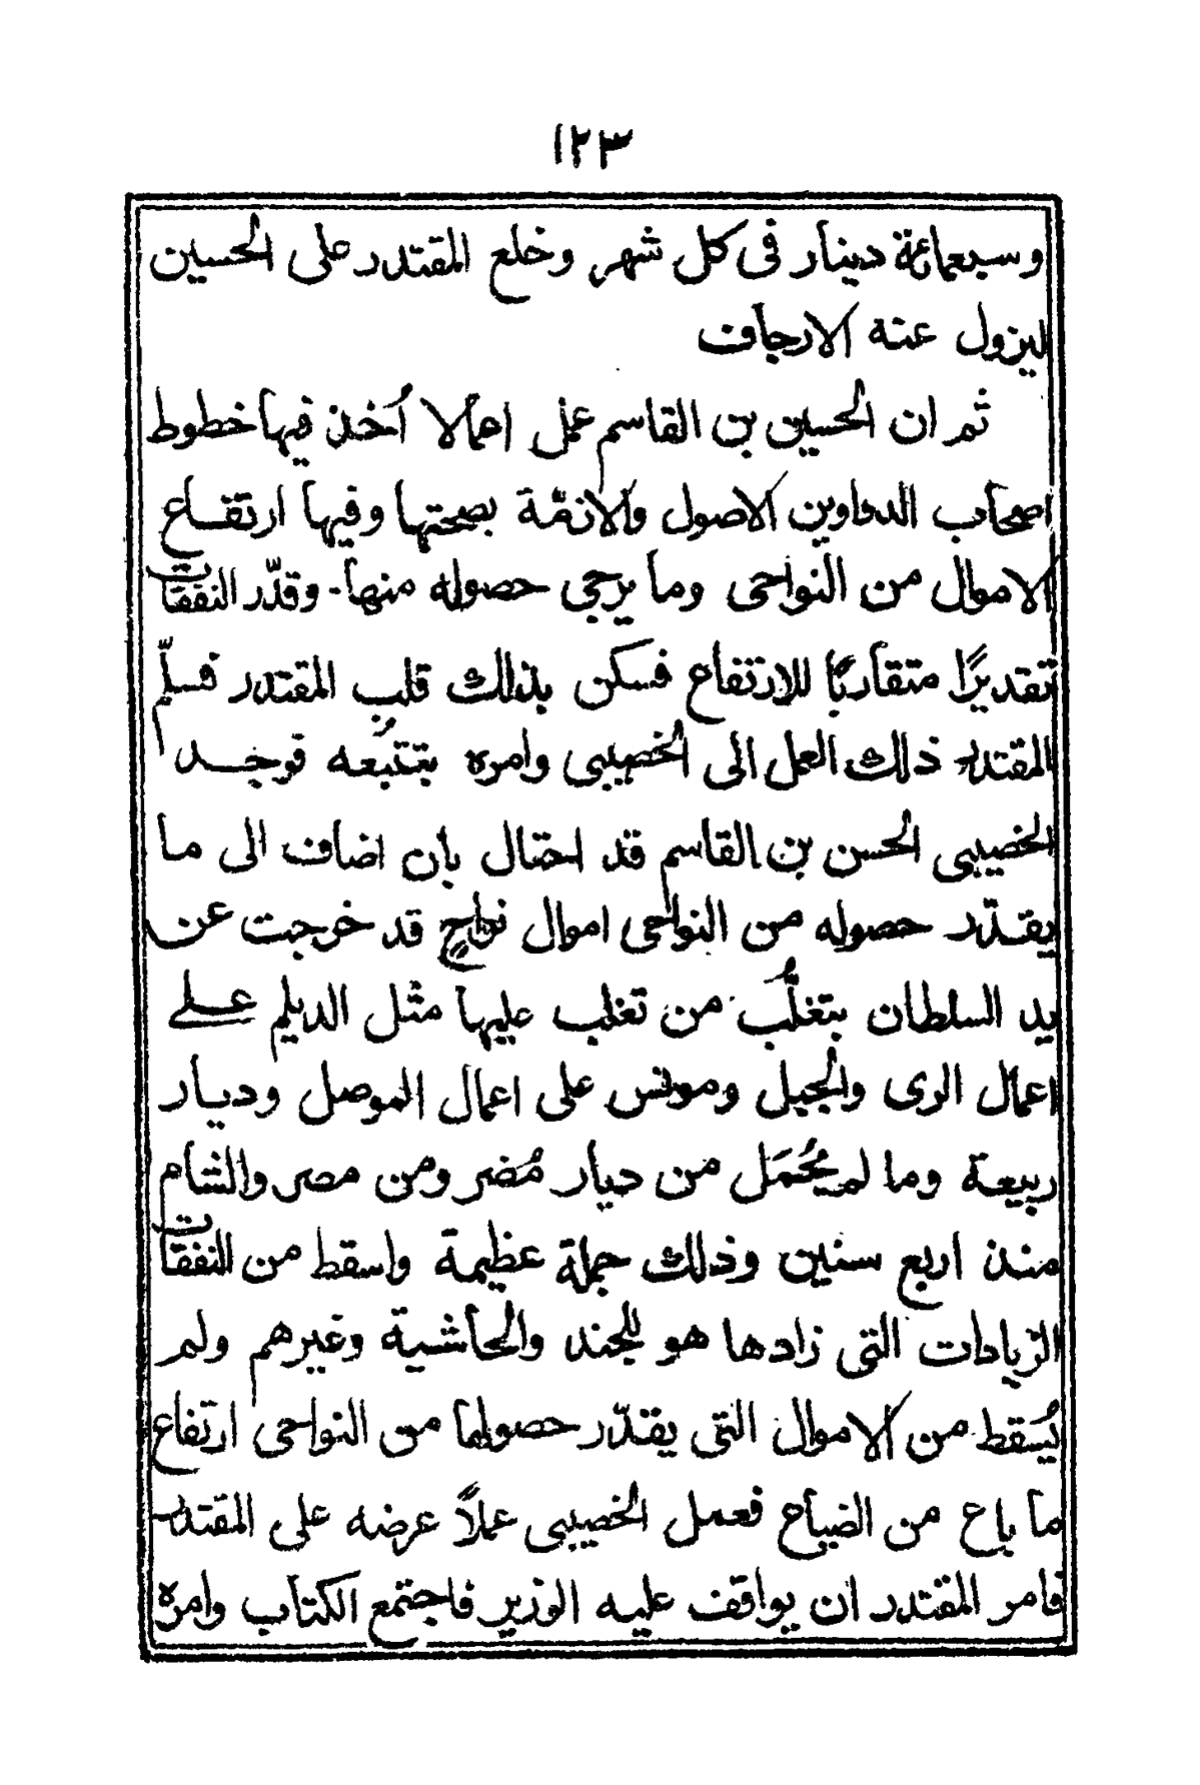 ١٢٣
وسبعمائة دينار فى كل شهر وخلع المقتدر على الحسين
ليزول عنه الارجاف
ثم ان الحسين بن القاسم عمل اعمالا أخذ فيها خطوط
اصحاب الدواوين الاصول والازمّة بصحتها وفيها ارتفاع
الاموال من النواحى وما يرجى حصوله منها. وقدّر النفقات
تقديرًا متقاربًا للارتفاع فسكن بذلك قلب المقتدر فسلّم
المقتدر ذلك العمل الى الخصيبى وامره بتتبُّعه فوجد
الخصيبى الحسن بن القاسم قد احتال بأن اضاف الى ما
يقدّر حصوله من النواحى اموال نواحٍ قد خرجت عن
يد السلطان بتغلُّب من تغلب عليها مثل الديلم على
اعمال الرى والجبل ومونس على اعمال الموصل وديار
ربيعة وما لم يُحْمَل من ديار مُضر ومن مصر والشام
منذ اربع سنين وذلك جملة عظيمة واسقط من النفقات
الزيادات التى زادها هو للجند والحاشية وغيرهم ولم
يُسقط من الاموال التى يقدّر حصولها من النواحى ارتفاع
ما باع من الضياع فعمل الخصيبى عملاً عرضه على المقتدر
فامر المقتدر ان يواقف عليه الوزير فاجتمع الكتاب وامره